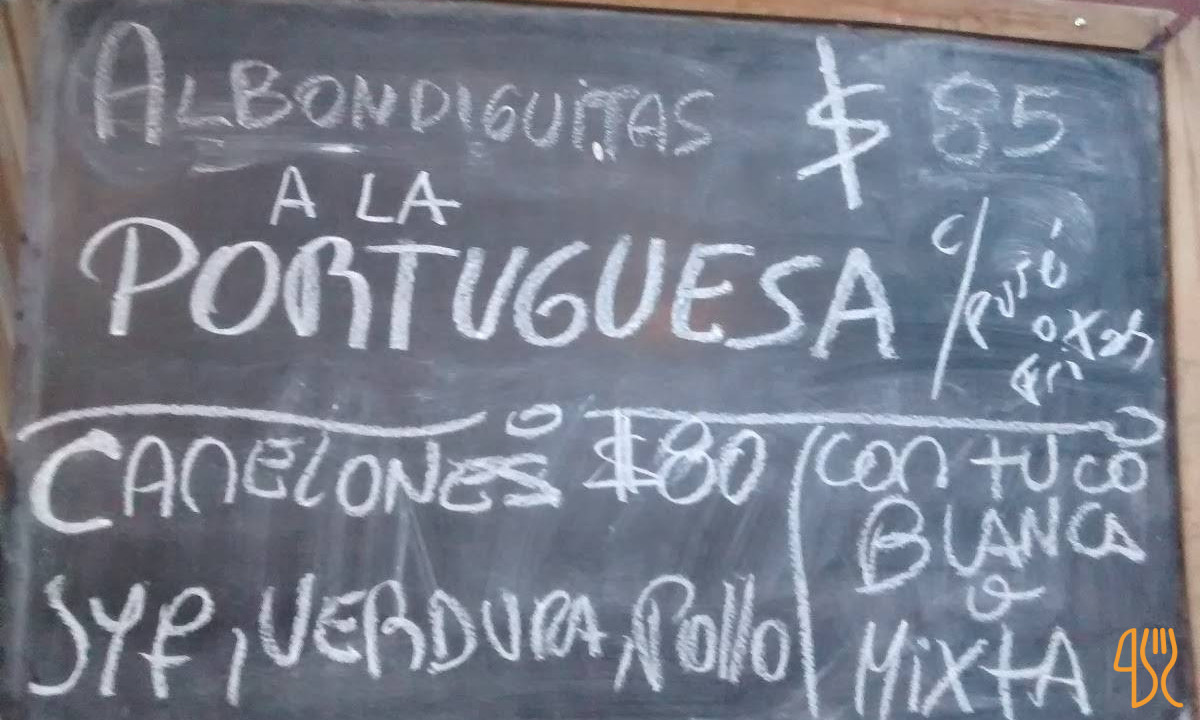 ALBONDIGUITAS $ 85
A LA
PORTUGUESA c/
puré
CANELONES $80
SYP, VERDURA, Pollo
CON TUCO
BLANCA
O
MIXTA